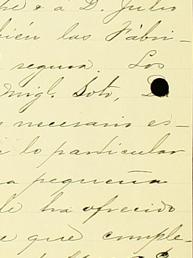 he á a D. Julio
bién las Fábri-
segura. Los
Migl. Soto, D
necesario es-
lo particular
a pequeña
le ha ofrecido
e que cumple